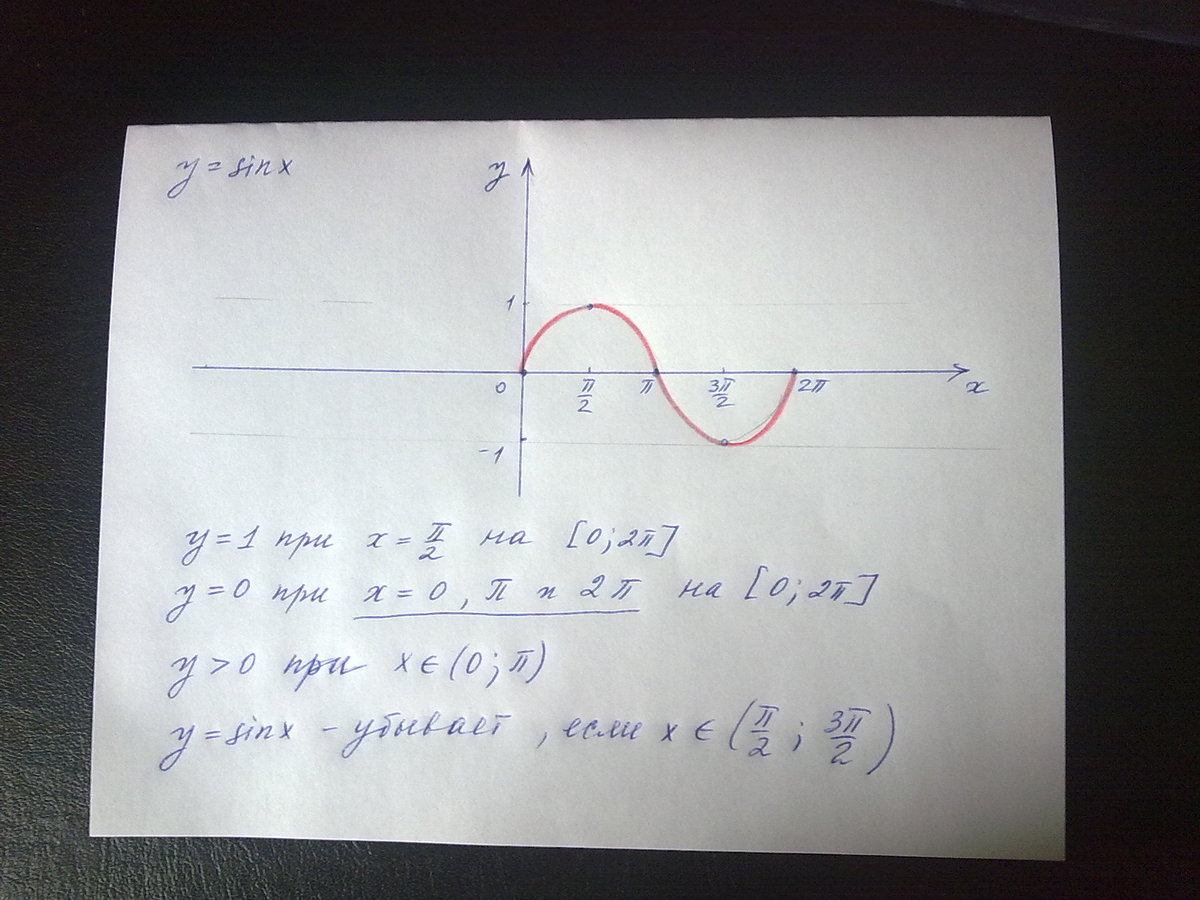 y = sin x
y
1
0
π/2
π
3π/2
2π
x
-1
y = 1 при x = π/2 на [0; 2π]
y = 0 при x = 0, π и 2π на [0; 2π]
y > 0 при x ∈ (0; π)
y = sin x - убывает, если x ∈ (π/2; 3π/2)